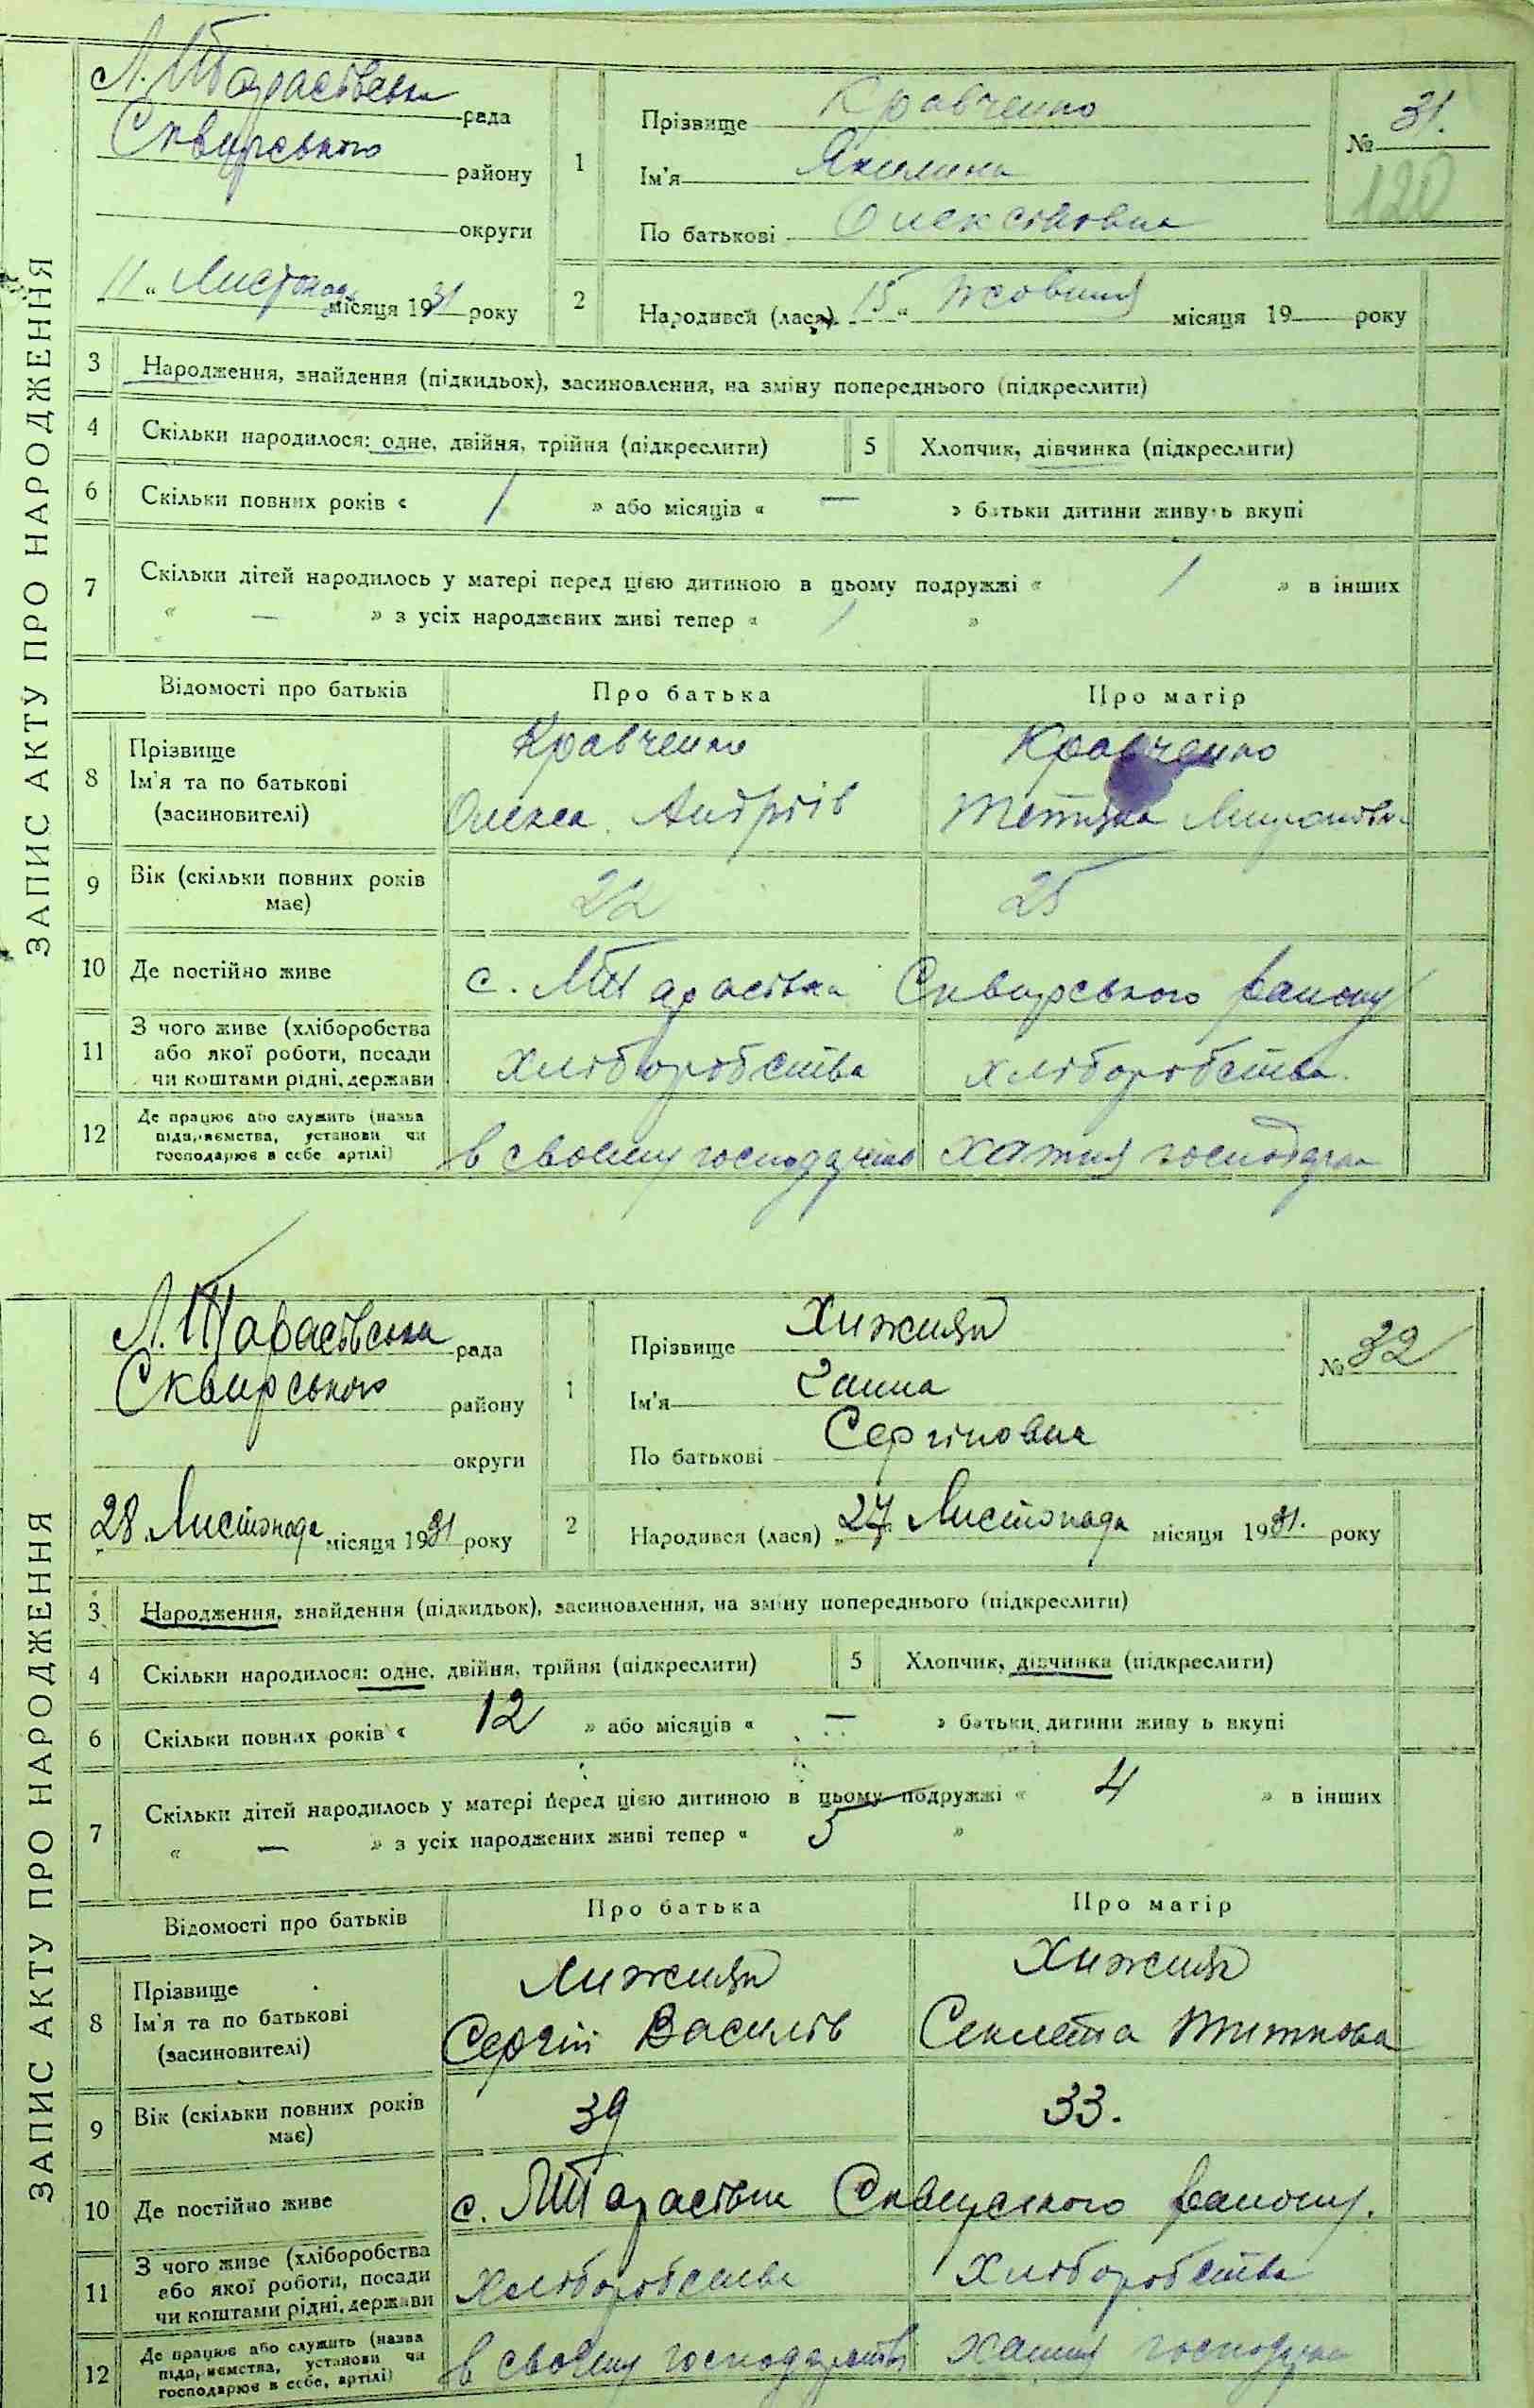 ЗАПИС АКТУ ПРО НАРОДЖЕННЯ
Л. Тарасівська рада
Сквирського району
округи
11 „ Листопада місяця 1931 року
1
Прізвище Кравченко
Ім'я Якилина
По батькові Олексіївна
№ 31.
120
2
Народився (лася) 15 „ жовтня місяця 19 року
3 Народження, знайдення (підкидьок), засиновлення, на зміну попереднього (підкреслити)
4 Скільки народилося: одне, двійня, трійня (підкреслити) 5 Хлопчик, дівчинка (підкреслити)
6 Скільки повних років « 1 » або місяців « — » батьки дитини живуть вкупі
7 Скільки дітей народилось у матері перед цією дитиною в цьому подружжі « 1 » в інших
« — » з усіх народжених живі тепер « 1 »
Відомості про батьків Про батька Про матір
8 Прізвище Кравченко Кравченко
Ім'я та по батькові Олекса Андріїв Тетяна Миронівна
(засиновителі)
9 Вік (скільки повних років має) 22 25
10 Де постійно живе с. Тарасівка Сквирського району
11 З чого живе (хліборобства або якої роботи, посади чи коштами рідні, держави хліборобства хліборобства
12 Де працює або служить (назва підприємства, установи чи господарює в себе, артілі) в своєму хатня господарка
ЗАПИС АКТУ ПРО НАРОДЖЕННЯ
Л. Тарасівська рада
Сквирського району
округи
„28 Листопада місяця 1931 року
1
Прізвище Хижняк
Ім'я Ганна
По батькові Сергіновна
№ 32
2
Народився (лася) „27 Листопада місяця 1931. року
3 Народження, знайдення (підкидьок), засиновлення, на зміну попереднього (підкреслити)
4 Скільки народилося: одне, двійня, трійня (підкреслити) 5 Хлопчик, дівчинка (підкреслити)
6 Скільки повних років « 12 » або місяців « — » батьки дитини живу ь вкупі
7 Скільки дітей народилось у матері перед цією дитиною в цьому подружжі « 4 » в інших
« — » з усіх народжених живі тепер « 5 »
Відомості про батьків Про батька Про матір
8 Прізвище Хижняк Хижняк
Ім'я та по батькові Сергій Василів Секлета Титкова
(засиновителі)
9 Вік (скільки повних років має) 39 33.
10 Де постійно живе с. Тарасівка Сквирського району.
11 З чого живе (хліборобства або якої роботи, посади чи коштами рідні, держави хліборобства хліборобства
12 Де працює або служить (назва підприємства, установи чи господарює в себе, артілі) в своєму господарстві хатня господарка